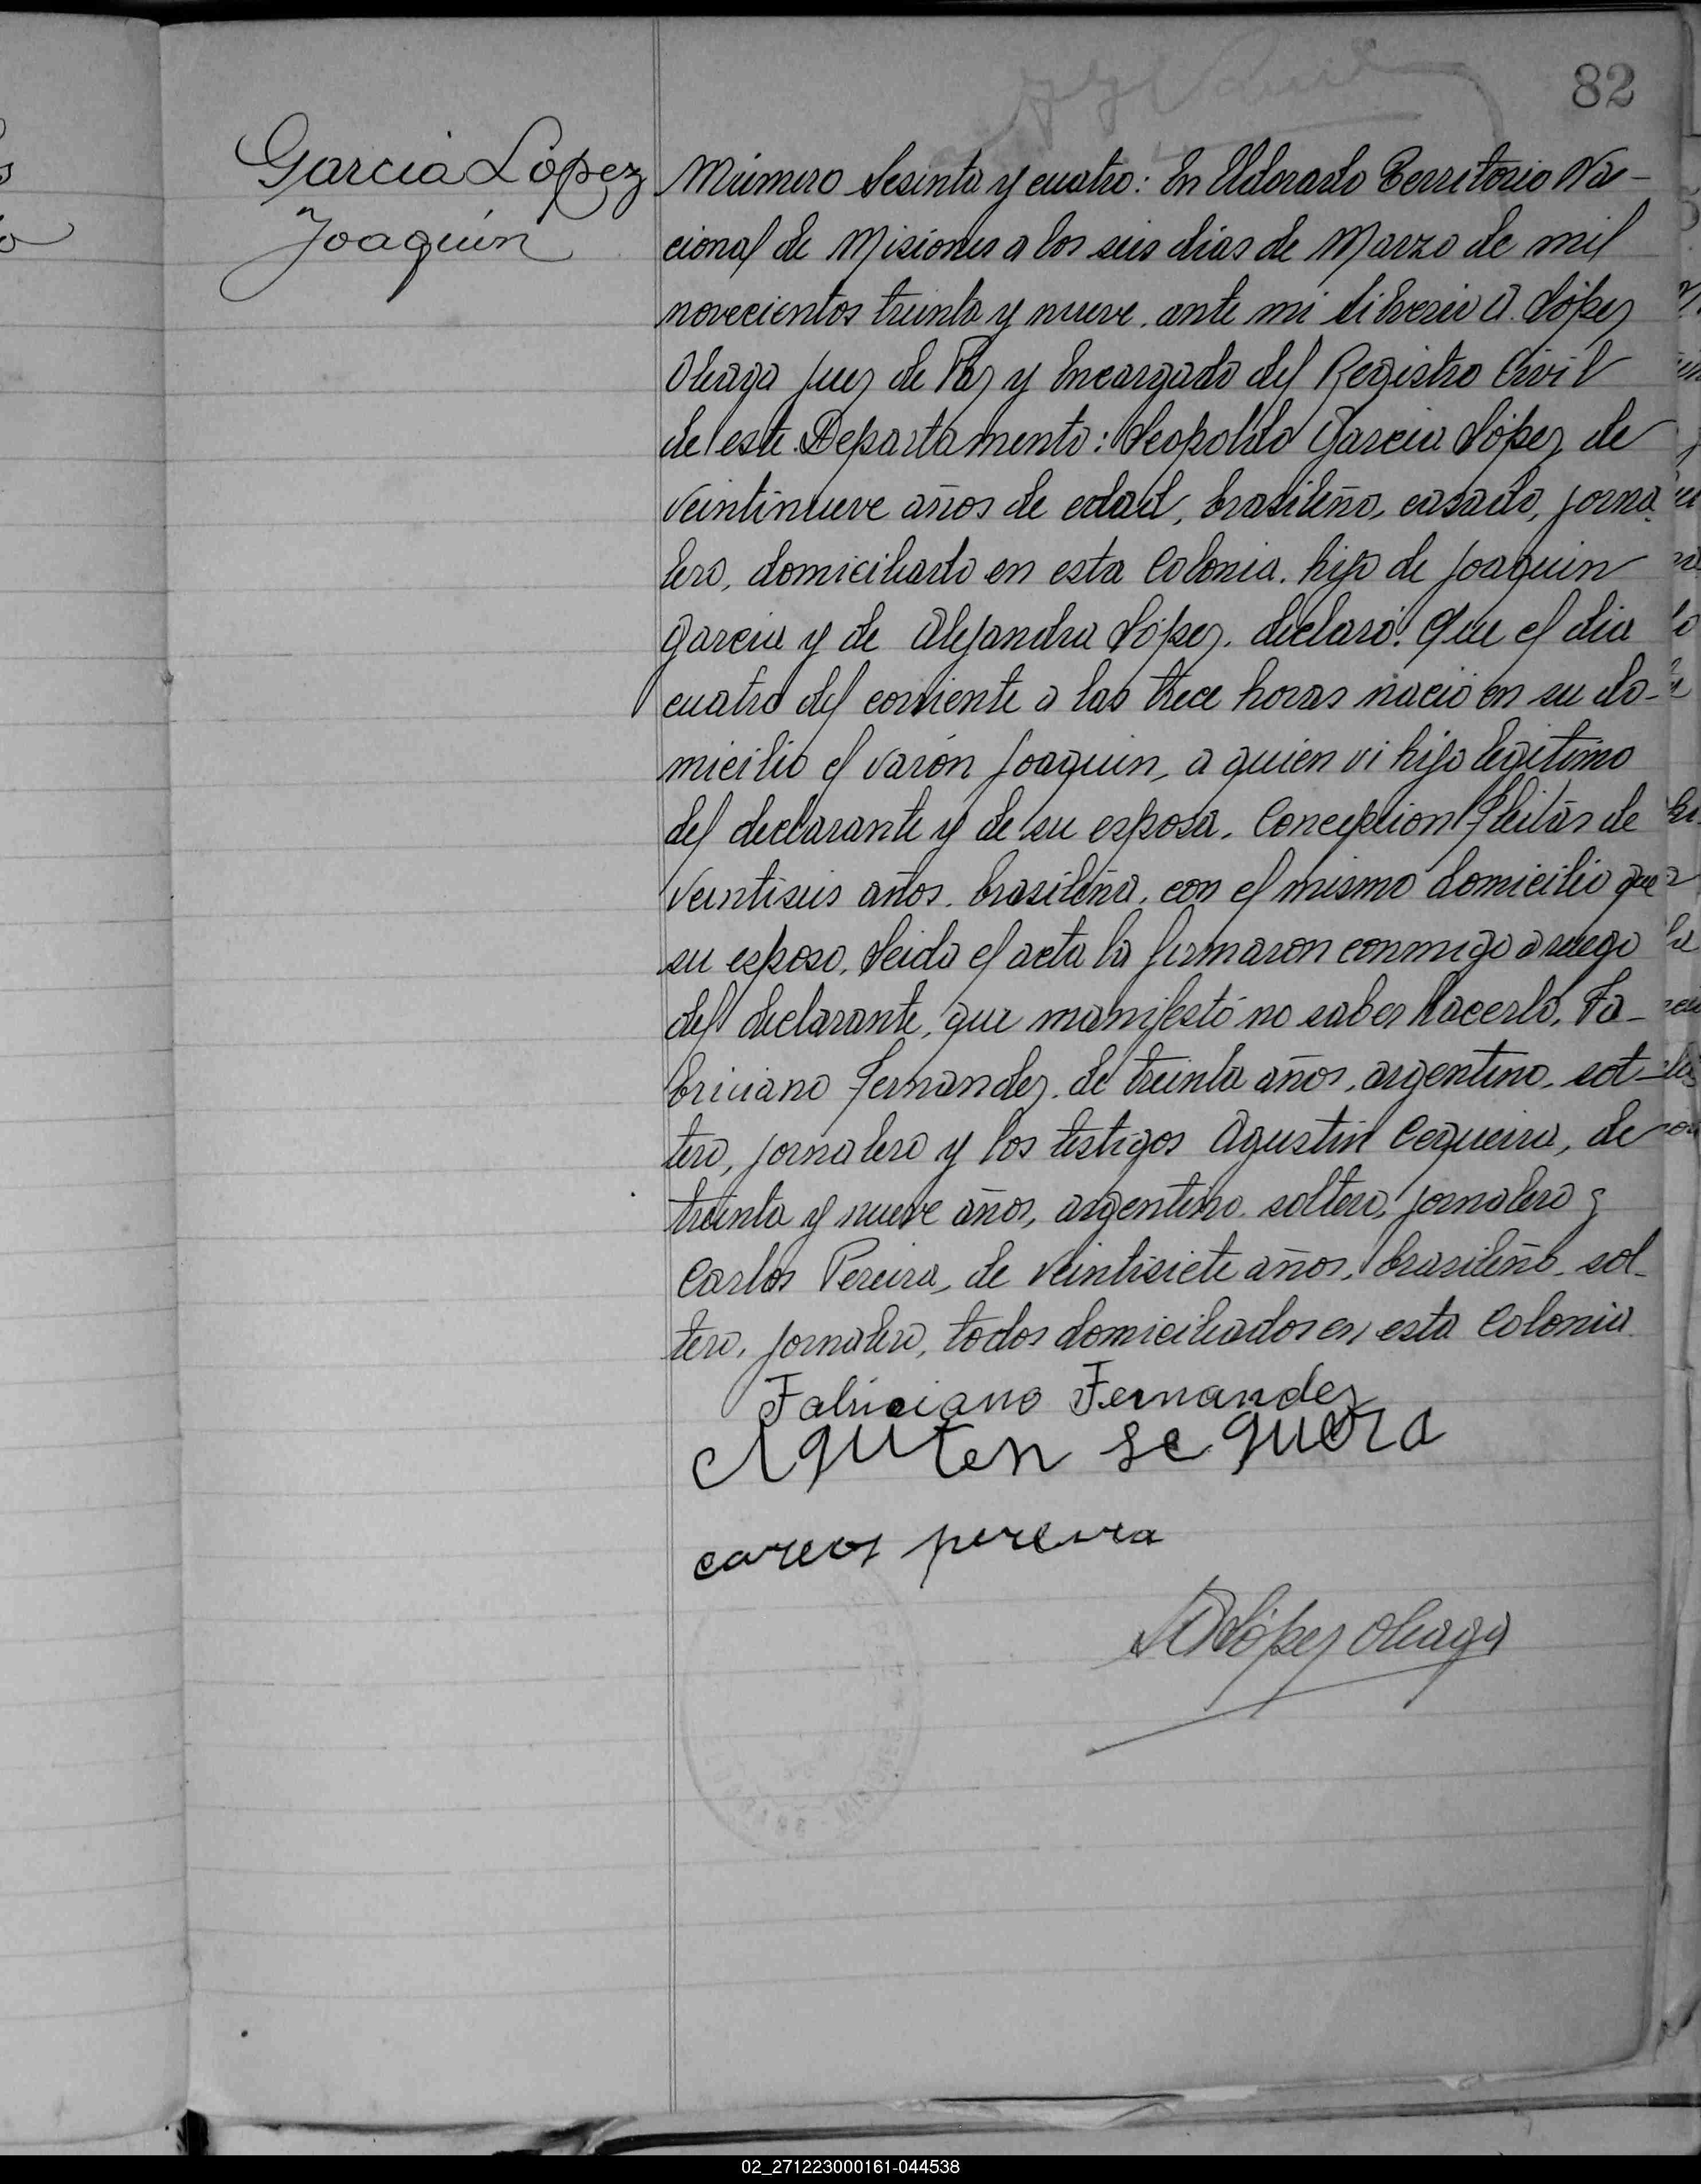 82
Garcia López
Joaquín
Número Sesenta y cuatro: En Eldorado Territorio Na-
cional de Misiones a los seis dias de Marzo de mil
novecientos treinta y nueve. ante mi Liberio A. López
Oleaga Juez de Paz y Encargado del Registro Civil
de este Departamento: Leopoldo Garcia López de
veintinueve años de edad, brasileño, casado, jorna
lero, domiciliado en esta Colonia. hijo de Joaquin
Garcia y de Alejandra López. declaró: Que el dia
cuatro del corriente a las trece horas nació en su do-
micilio el varón Joaquin, a quien vi hijo legitimo
del declarante y de su esposa. Concepcion Fleitas de
veintiseis años. brasileña. con el mismo domicilio que
su esposo. Leida el acta la firmaron conmigo a ruego
del declarante, que manifestó no saber hacerlo, Fa-
briciano Fernandez. de treinta años, argentino. sol-
tero, jornalero y los testigos Agustin Cequeira, de
treinta y nueve años, argentino. soltero, jornalero y
Carlos Pereira, de veintisiete años, brasileño. sol-
tero. jornalero, todos domiciliados en esta Colonia.
Fabriciano Fernandez
Aguten se quera
carlos pereira
LA López Oleaga
02_271223000161-044538